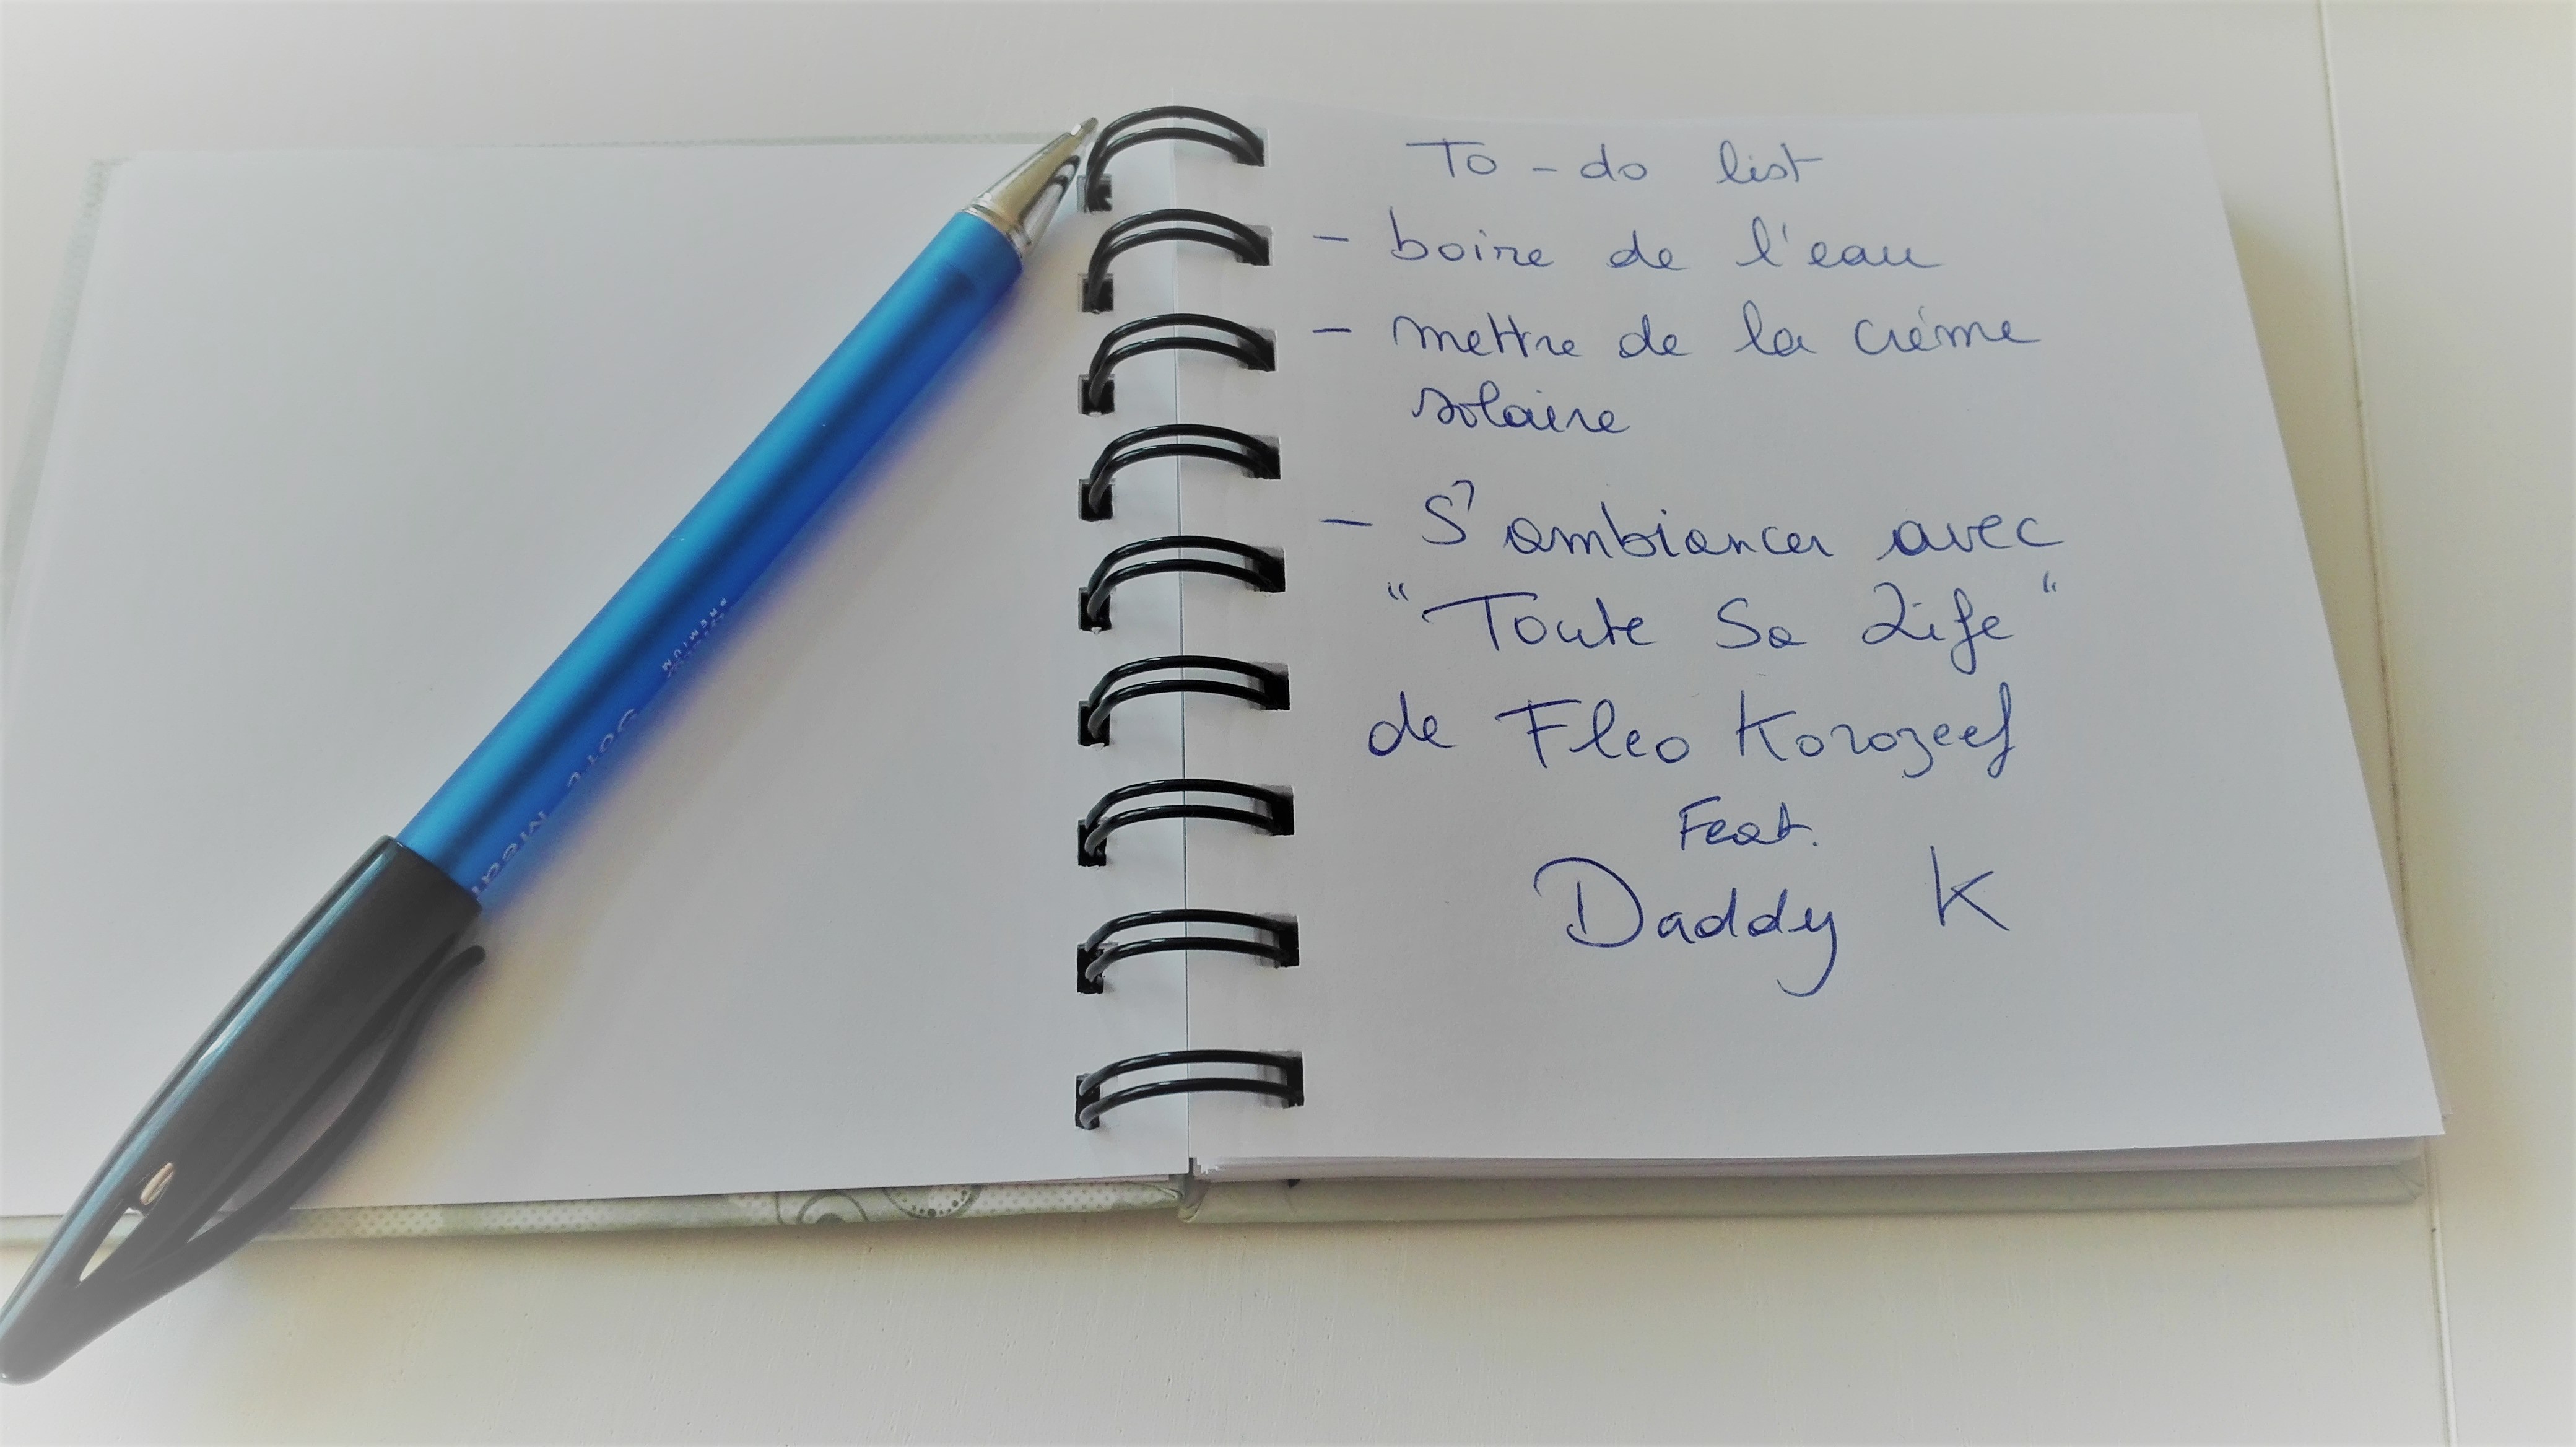 To-do list
- boire de l'eau
- mettre de la crème
solaire
- S'ambiancer avec
"Toute Sa Life"
de Fleo Korozeef
Feat.
Daddy K
PREMIUM